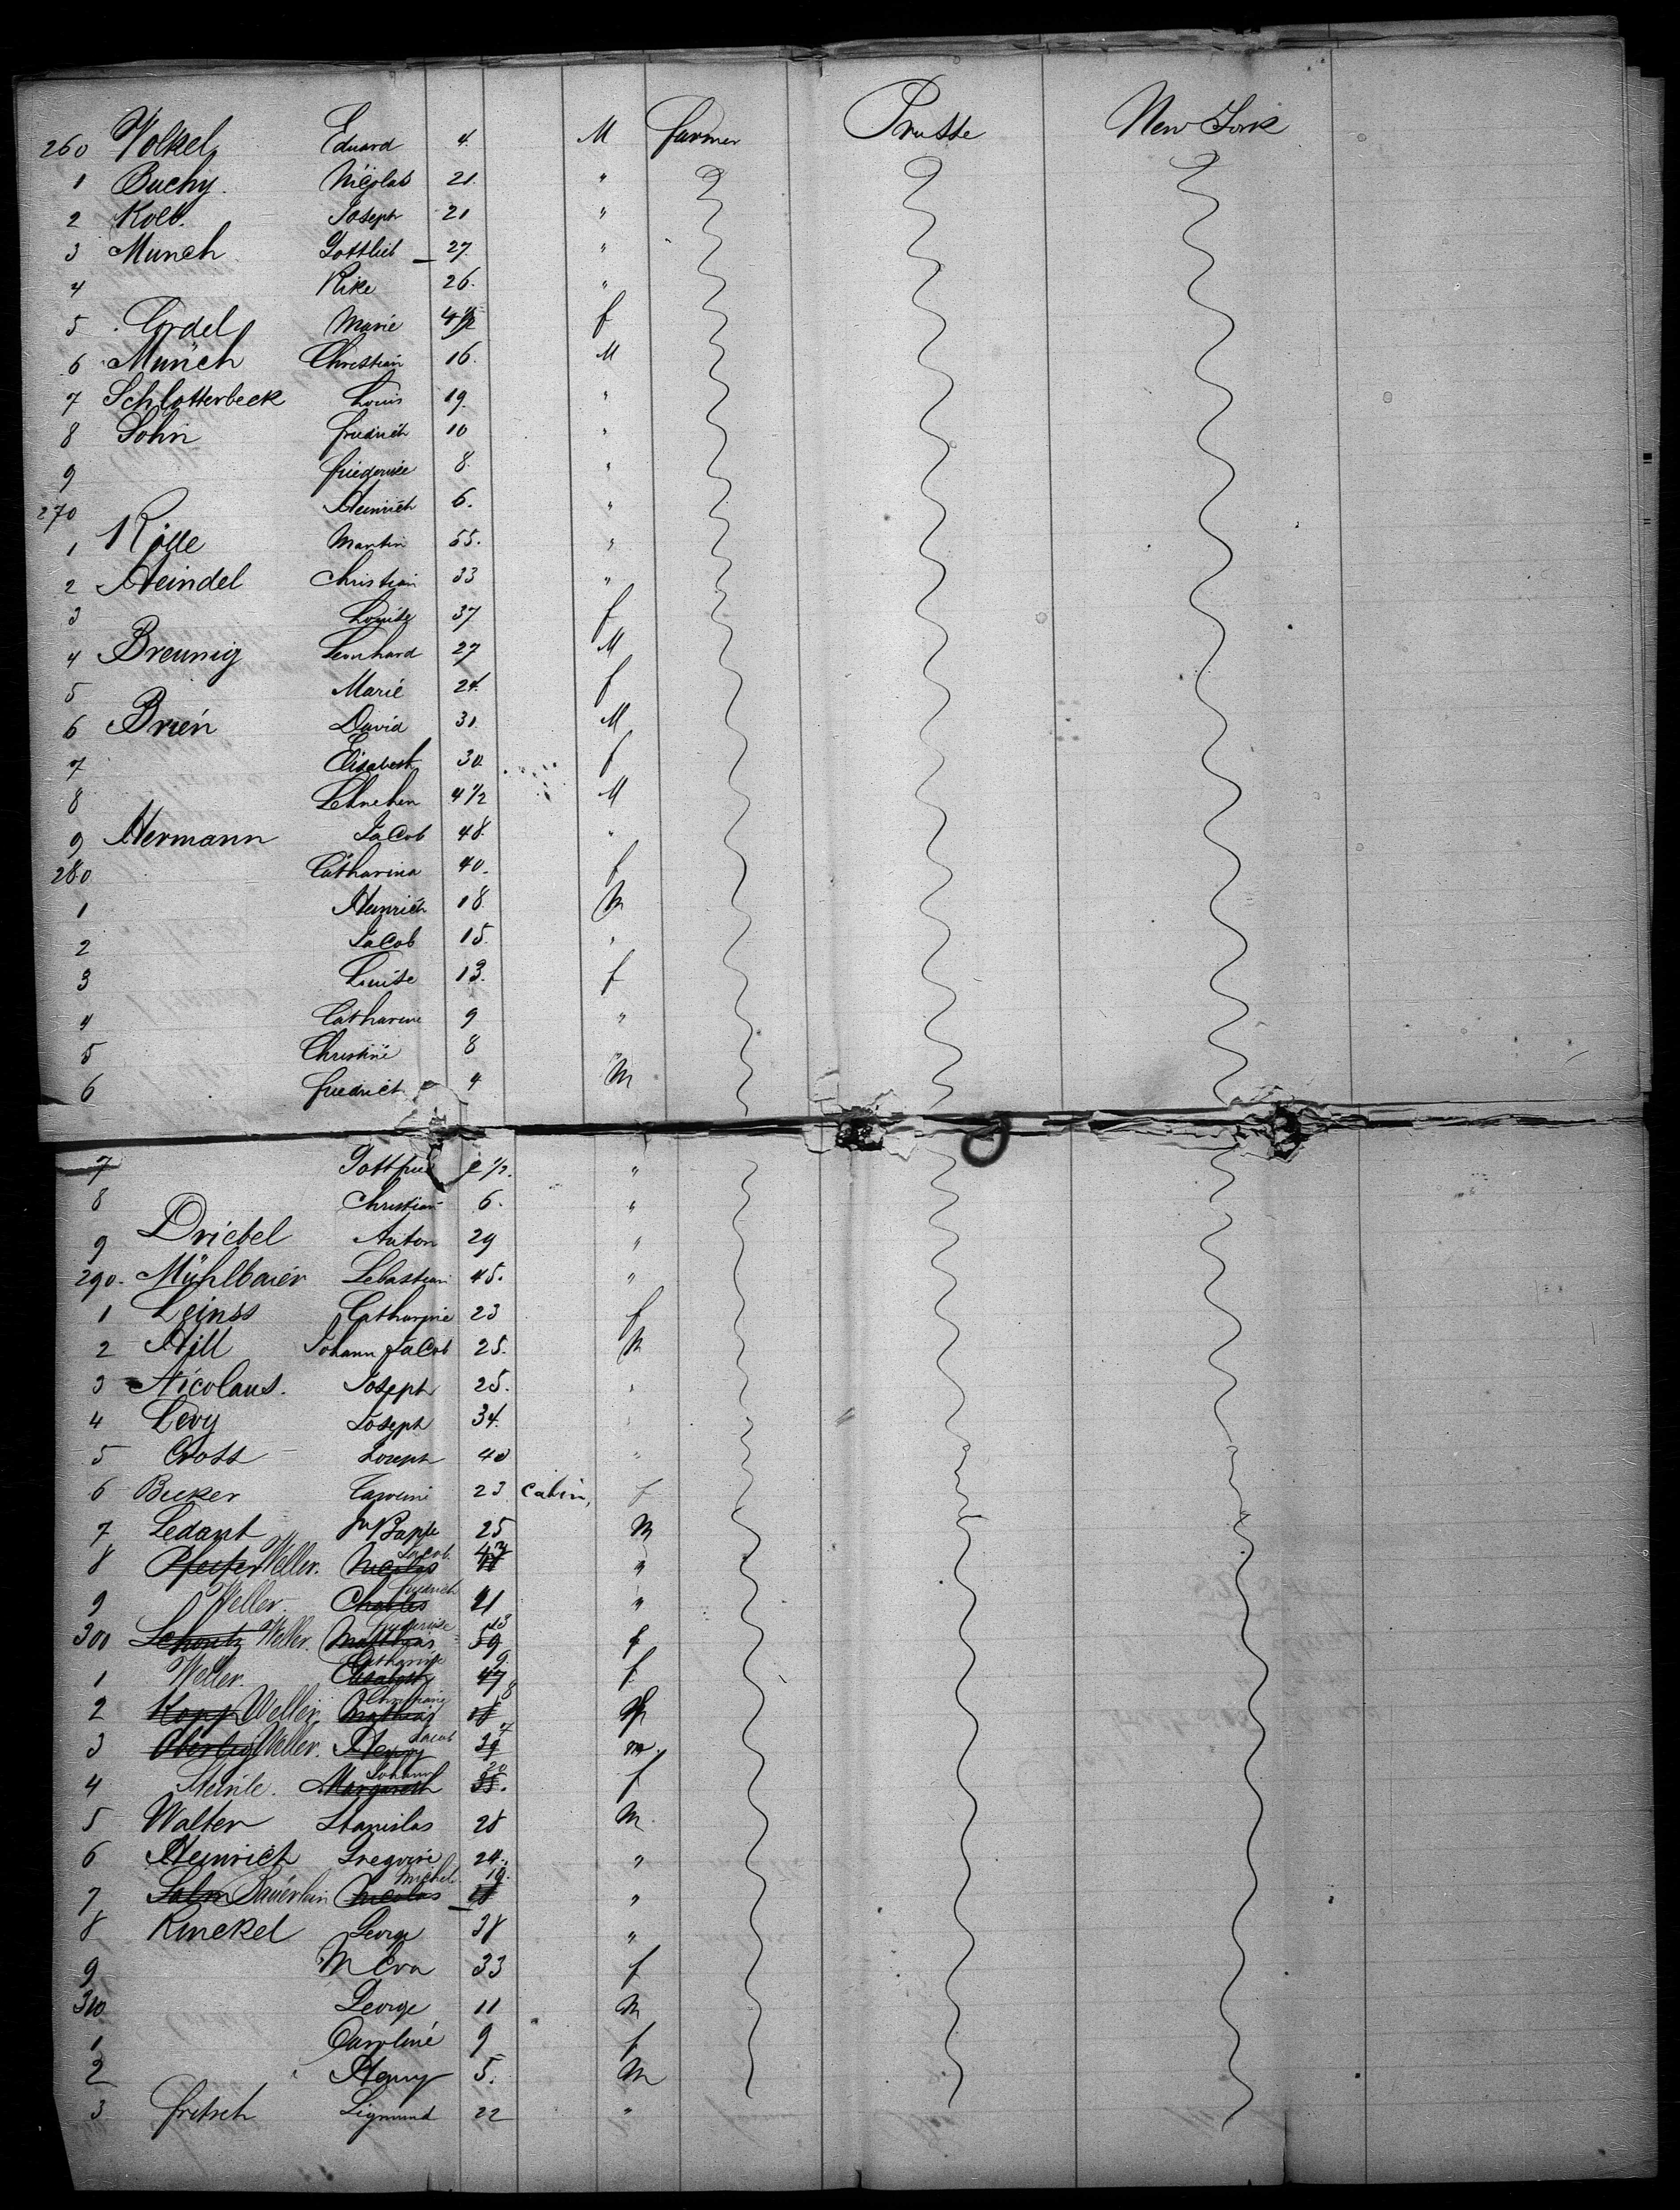 260 Volkel Eduard 4. M farmer Prusse New York
1 Buchy. Nicolas 21. "
2 Kolb. Joseph 21 "
3 Munch Gottlieb 27. "
4 Rike 26. "
5 Cordel Marie 4 1/2 f
6 Münch Christian 16. M
7 Schlotterbeck Louis 19. "
8 Sohn friedrich 10 "
9 friedericke 8. "
270 Heinrich 6. "
1 Rölle Martin 55. "
2 Heindel Christian 33 "
3 Louise 37 f
4 Breunig Leonhard 27 M
5 Marie 24. f
6 Brien David 31. M
7 Elisabeth 30. f
8 Lehnchen 4 1/2 M
9 Hermann Jacob 48. "
280 Catharina 40. f
1 Heinrich 18 M
2 Jacob 15. "
3 Louise 13. f
4 Catharine 9 "
5 Christine 8 "
6 friedrich 4 M
7 Gottfried 1/2. "
8 Christian 6. "
9 Driebel Anton 29 "
290. Mühlbaier Sebastian 45. "
1 Leinss Catharine 23 f
2 Hill Johann Jacob 25. M
3 Nicolaus. Joseph 25. "
4 Levy Joseph 34. "
5 Gross Joseph 40 "
6 Becker Caroline 23 Cabin, f
7 Ledant Jn Bapte 25 M
8 Pfeifer Weller. Nicolas Jacob. 43 "
9 Weller. Charles friedrich 41 "
300 Schontz Weller. Matthias 59 13 f
1 Weller. Elisabeth Catharine 47 9. f
2 Kopp Weller. Mathias Christiane 8 f
3 Oberley Weller. Henry Jacob 39 m.
4 Steinle. Margareth Johann 35. 20 f
5 Walter Stanislas 28 M
6 Heinrich Gregoire 24. "
7 Salm Bauerlein Nicolas Michel 19. "
8 Kunckel George 38 "
9 M Eva 33 f
310 George 11 M
1 Caroline 9 f
2 Henry 5. M
3 fritsch Sigmund 22 "